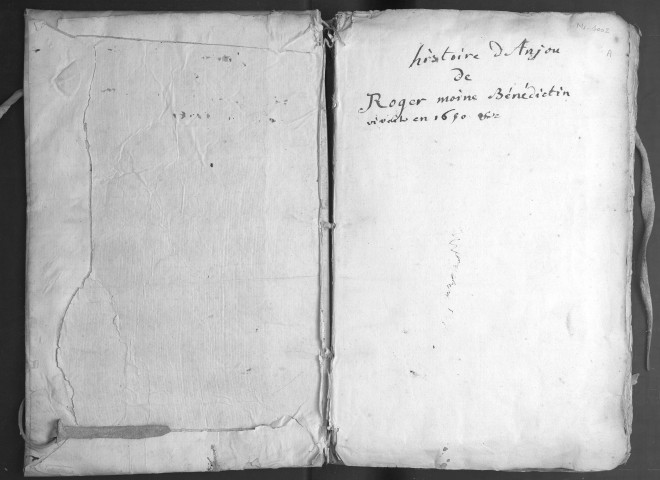 histoire D'Anjou
de
Roger moine Bénédictin
vivait en 1650